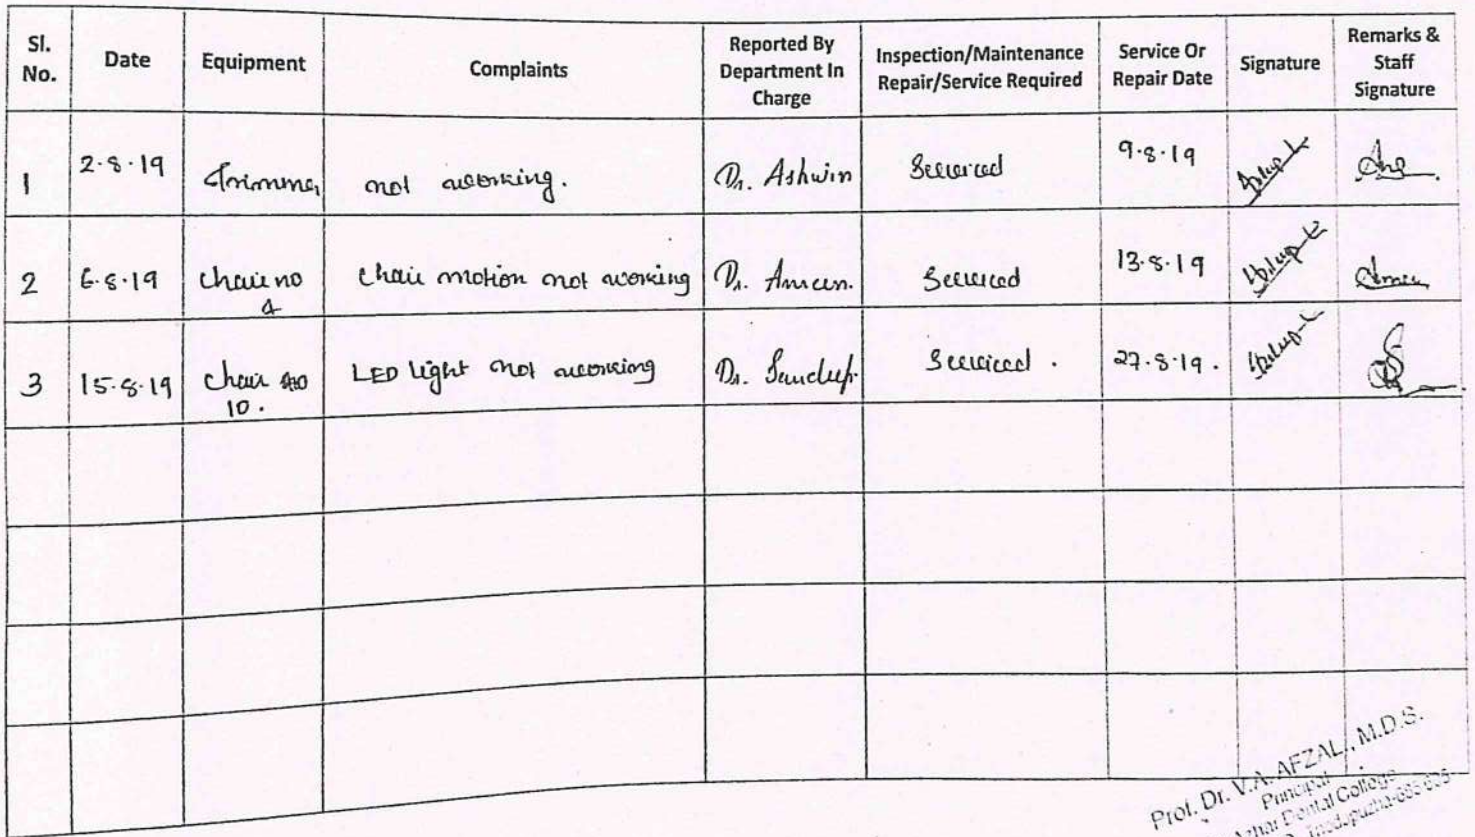 Sl. No. Date Equipment Complaints Reported By Department In Charge Inspection/Maintenance Repair/Service Required Service Or Repair Date Signature Remarks & Staff Signature
1 2.8.19 Trimmer not working. Dr. Ashwin Serviced 9.8.19
2 6.8.19 Chair no 4 Chair motion not working Dr. Ameen. Serviced 13.8.19
3 15.8.19 Chair no 10. LED light not working Dr. Sandeep. Serviced. 27.8.19.
Prof. Dr. V.A. AFZAL, M.D.S.
Principal
Azhar Dental College